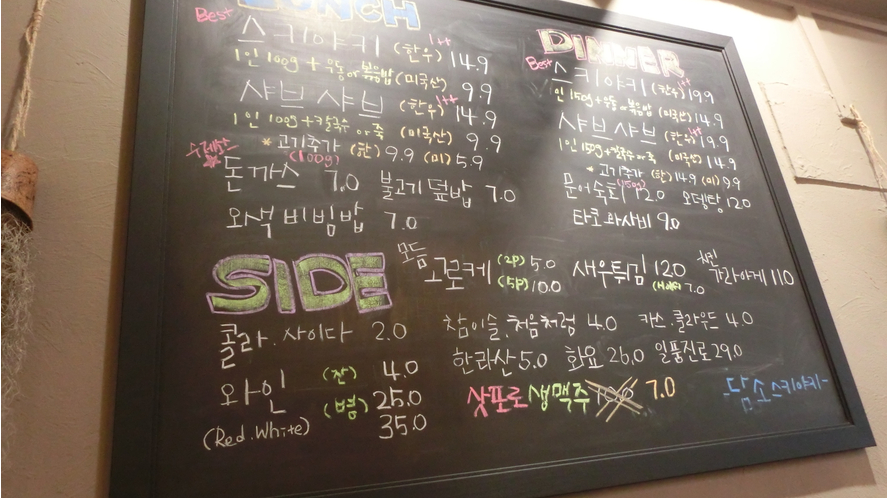 LUNCH
Best
스키야키 (한우) 1++ 14.9
1인 100g + 우동 or 볶음밥 (미국산) 9.9
샤브샤브 (한우) 1++ 14.9
1인 100g + 칼국수 or 죽 (미국산) 9.9
* 고기추가 (한) 9.9 (미) 5.9
(100g)
수제돈까스 7.0 불고기덮밥 7.0
오색비빔밥 7.0
DINNER
Best
스키야키 (한우) 1++ 19.9
1인 150g + 우동 or 볶음밥 (미국산) 14.9
샤브샤브 (한우) 1++ 19.9
1인 150g + 칼국수 or 죽 (미국산) 14.9
* 고기추가 (한) 14.9 (미) 9.9
(150g)
문어숙회 12.0 오뎅탕 12.0
타코와사비 9.0
SIDE
모듬고로케 (2P) 5.0 새우튀김 12.0 치킨가라아게 11.0
(5P) 10.0 (Half) 7.0
콜라.사이다 2.0
와인 (잔) 4.0
(병) 25.0
(Red.White) 35.0
참이슬.처음처럼 4.0 카스.클라우드 4.0
한라산 5.0 화요 26.0 일품진로 29.0
삿포로생맥주 7.0
-담소스키야키-